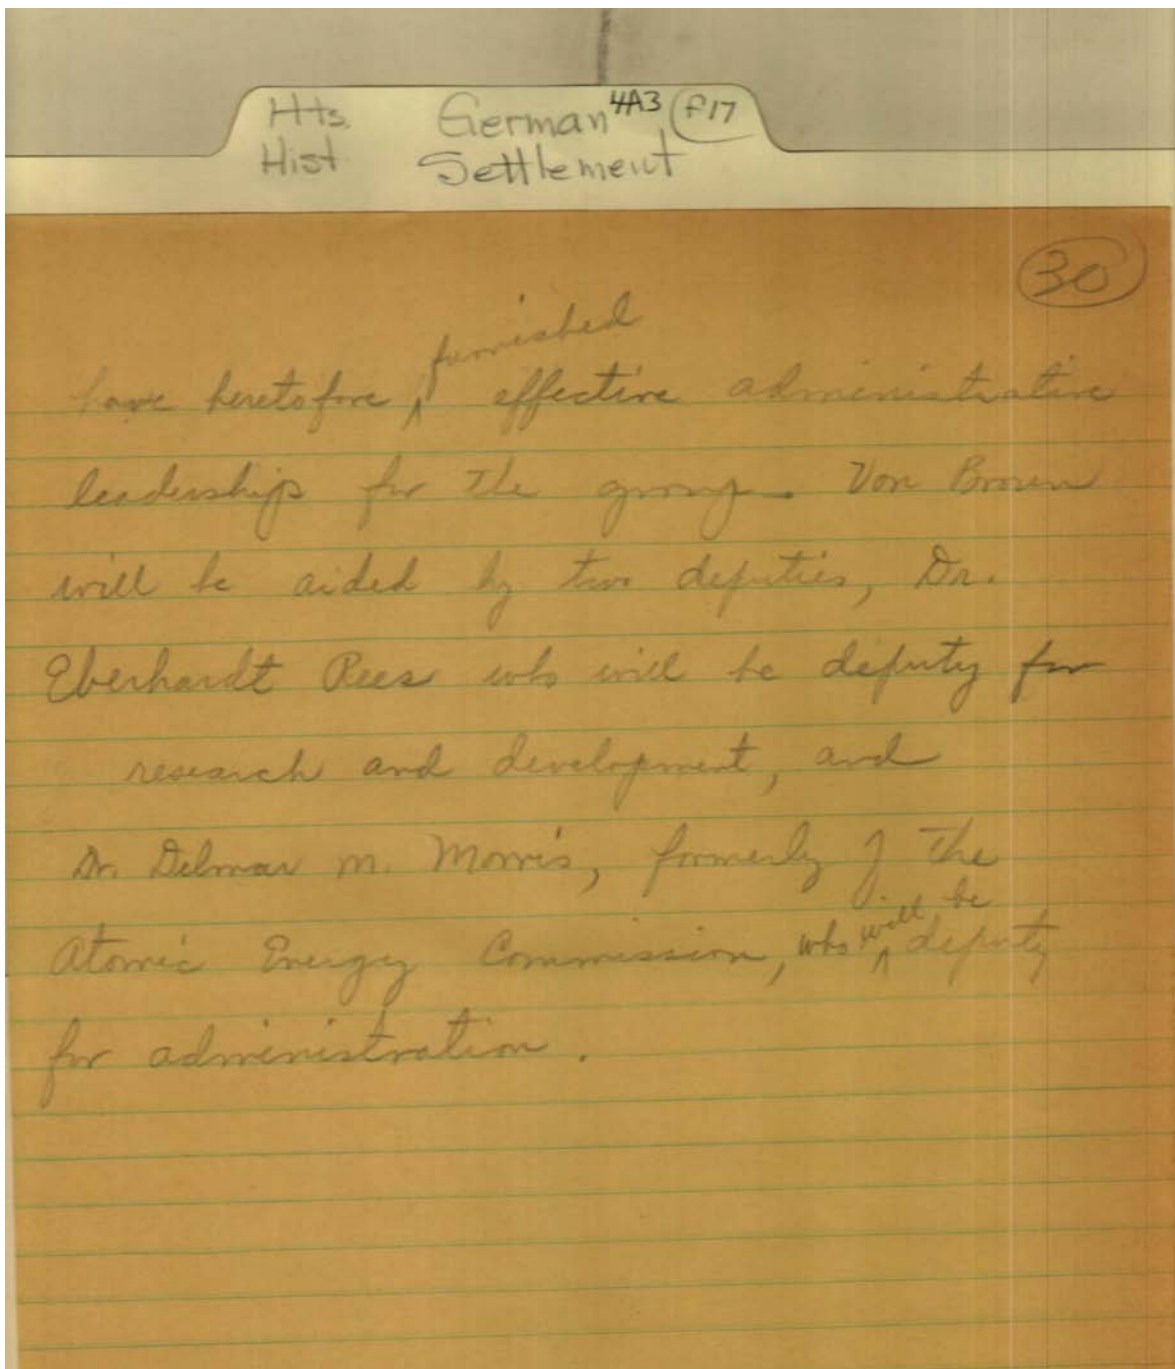 Hts. German 4A3 f17
Hist Settlement
30
furnished
have heretofore ^ effective administrative
leadership for the group. Von Braun
will be aided by two deputies, Dr.
Eberhardt Rees who will be deputy for
research and development, and
Dr. Delmar M. Morris, formerly of the
will be
Atomic Energy Commission, who ^ deputy
for administration.